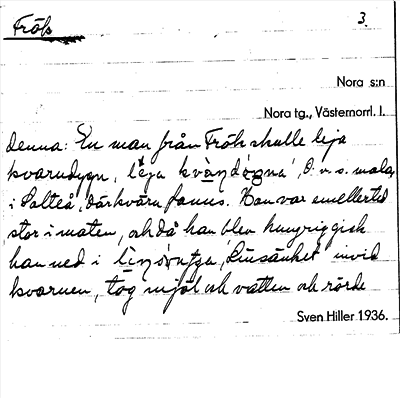 Frök 3.
Nora s:n
Nora tg., Västernorrl. l.
denna: En man från Frök skulle leja
kvarndygn, 'lęja kvàndøgna', d.v.s. mala,
i Salteå, där kvarn fanns. Han var emellertid
stor i maten, och då han blev hungrig gick
han ned i 'linsǫ̀ntja', Linsänket invid
kvarnen, tog mjöl och vatten och rörde
Sven Hiller 1936.